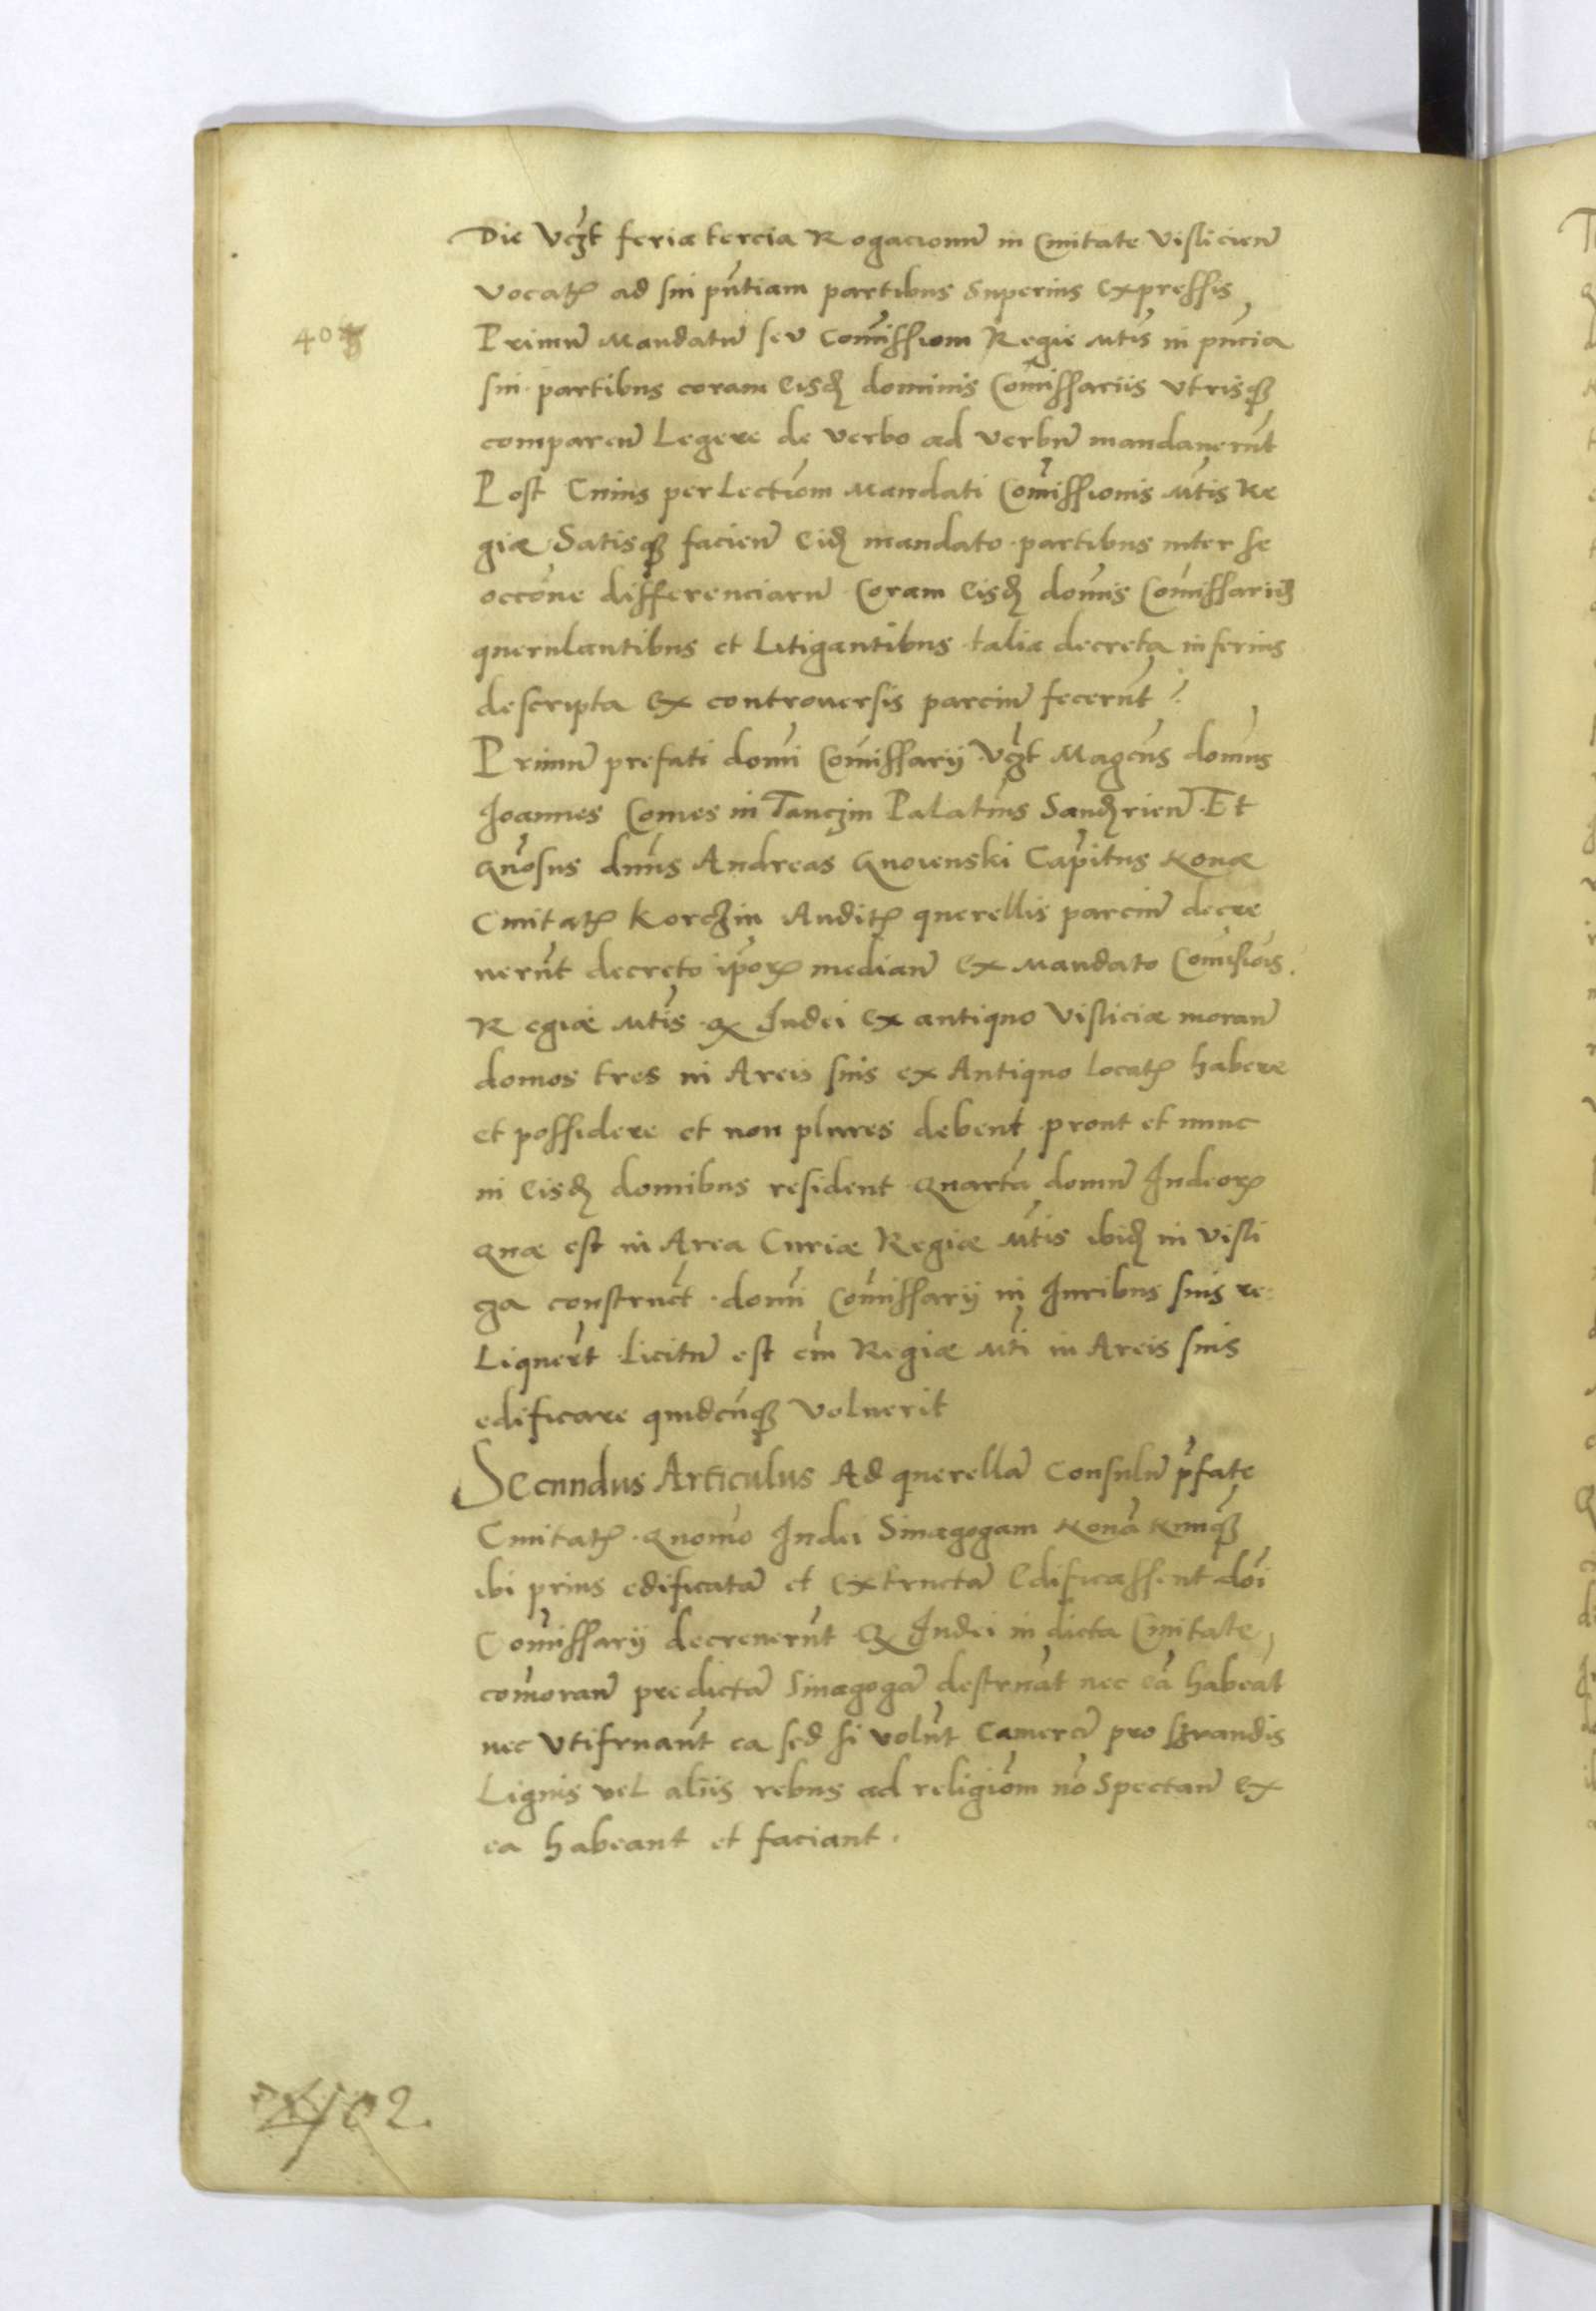 Die Vczt feria tercia Rogacionū in Ciuitate Visliciēn
vocatꝭ ad sui pn̄tiam partibus superius expressis
Primū Mandatū seu Comissiom Regie Mtis in pn̄cia
sui partibus coram eisdē dominis Comissariis vtrisqꝫ
comparen̄ Legere de verbo ad verbū mandauerūt
Post Cuius perlectiom Mandati Comissionis Mtis Re
giæ Satisqꝫ facien̄ eidē mandato partibus inter se
occōne differenciarū Coram eisdē domīs Comissariis
querulantibus et Litigantibus talia decreta inferius
descripta ex controuersis parciū fecerūt
Primū prefati domi Comissarij Vczt Magcūs domus
Joannes Comes in Tanczin Palatīus Sandrien̄ Et
Gnōsus dnūs Andreas Gnoienski Capitus Nouæ
Ciuitatꝭ Korczin Auditꝭ querellis parciū decre
uerūt decreto ip̄oꝝ median̄ ex Mandato Comissiōis
Regiæ Mtis ꝙ Judei ex antiquo Visliciæ moran̄
domos tres in Areis suis ex Antiquo locatꝭ habere
et possidere et non plures debent prout et nunc
in eisdē domibus resident Quartā domū Judeoꝝ
quæ est in Area Curiæ Regiæ Mtis ibidē in Visli
cza construct domi Comissarij in Juribus suis re
liquert licitū est em̄ Regiæ Mti in Areis suis
edificare quidcūqꝫ voluerit
Secundus Articulus Ad querellā Consulū pr̄fate
Ciuitatꝭ quomo Judei Sinagogam Nouā nūqꝫ
ibi prius edificatā et extructā edificassent doi
Comissarij decreuerūt ꝙ Judei in dicta Ciuitate
comoran̄ predictā Sinagogā destruāt nec eā habeāt
nec vtifruant ea sed si volūt Camerā pro seruandis
Lignis vel aliis rebus ad religiōm nō Spectan̄ ex
ea habeant et faciant.
402